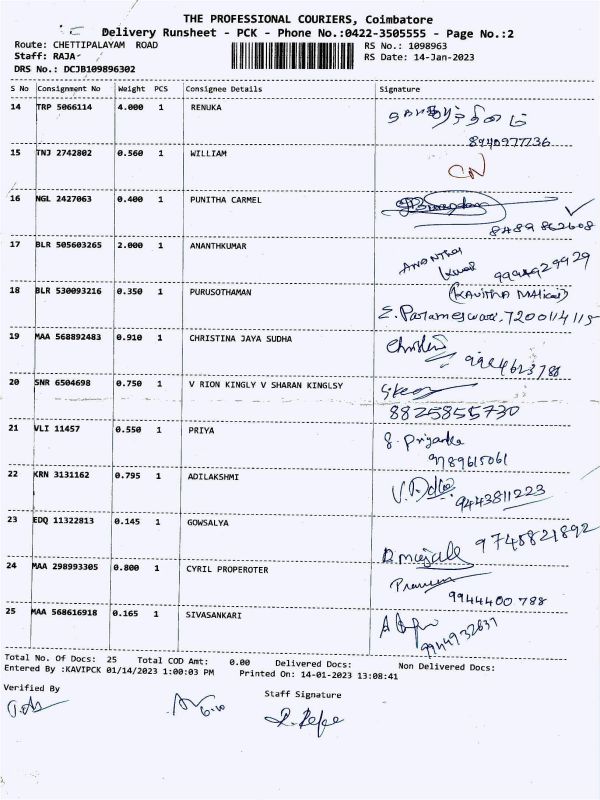 THE PROFESSIONAL COURIERS, Coimbatore
Delivery Runsheet - PCK - Phone No.:0422-3505555 - Page No.:2
Route: CHETTIPALAYAM ROAD RS No.: 1098963
Staff: RAJA RS Date: 14-Jan-2023
DRS No.: DCJB109896302
S No Consignment No Weight PCS Consignee Details Signature
14 TRP 5066114 4.000 1 RENUKA
8940977736
15 TNJ 2742802 0.560 1 WILLIAM CN
16 NGL 2427063 0.400 1 PUNITHA CARMEL
8489862608
17 BLR 505603265 2.000 1 ANANTHKUMAR
9994929929
18 BLR 530093216 0.350 1 PURUSOTHAMAN
E. Parameswari. 7200114115
19 MAA 568892483 0.910 1 CHRISTINA JAYA SUDHA
9984623788
20 SNR 6504698 0.750 1 V RION KINGLY V SHARAN KINGLSY
8825855730
21 VLI 11457 0.550 1 PRIYA
S. Priyanka
9789615061
22 KRN 3131162 0.795 1 ADILAKSHMI
9443811223
23 EDQ 11322813 0.145 1 GOWSALYA
9745821892
24 MAA 298993305 0.800 1 CYRIL PROPEROTER
Praveen
9944400788
25 MAA 568616918 0.165 1 SIVASANKARI
Total No. Of Docs: 25 Total COD Amt: 0.00 Delivered Docs: Non Delivered Docs:
Entered By :KAVIPCK 01/14/2023 1:00:03 PM Printed On: 14-01-2023 13:08:41
Verified By Staff Signature